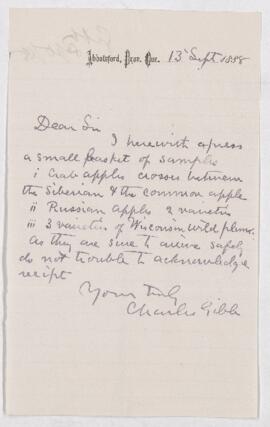 Abbotsford, Prov. Que. 13 Sept. 1888
Dear Sir
I herewith express
a small basket of samples
i Crab apples crosses between
the Siberian & the common apple
ii Russian apples 2 varieties
iii 3 varieties of Wisconsin wild plums.
As they are sure to arrive safely
do not trouble to acknowledge
receipt
Yours truly
Charles Gibb